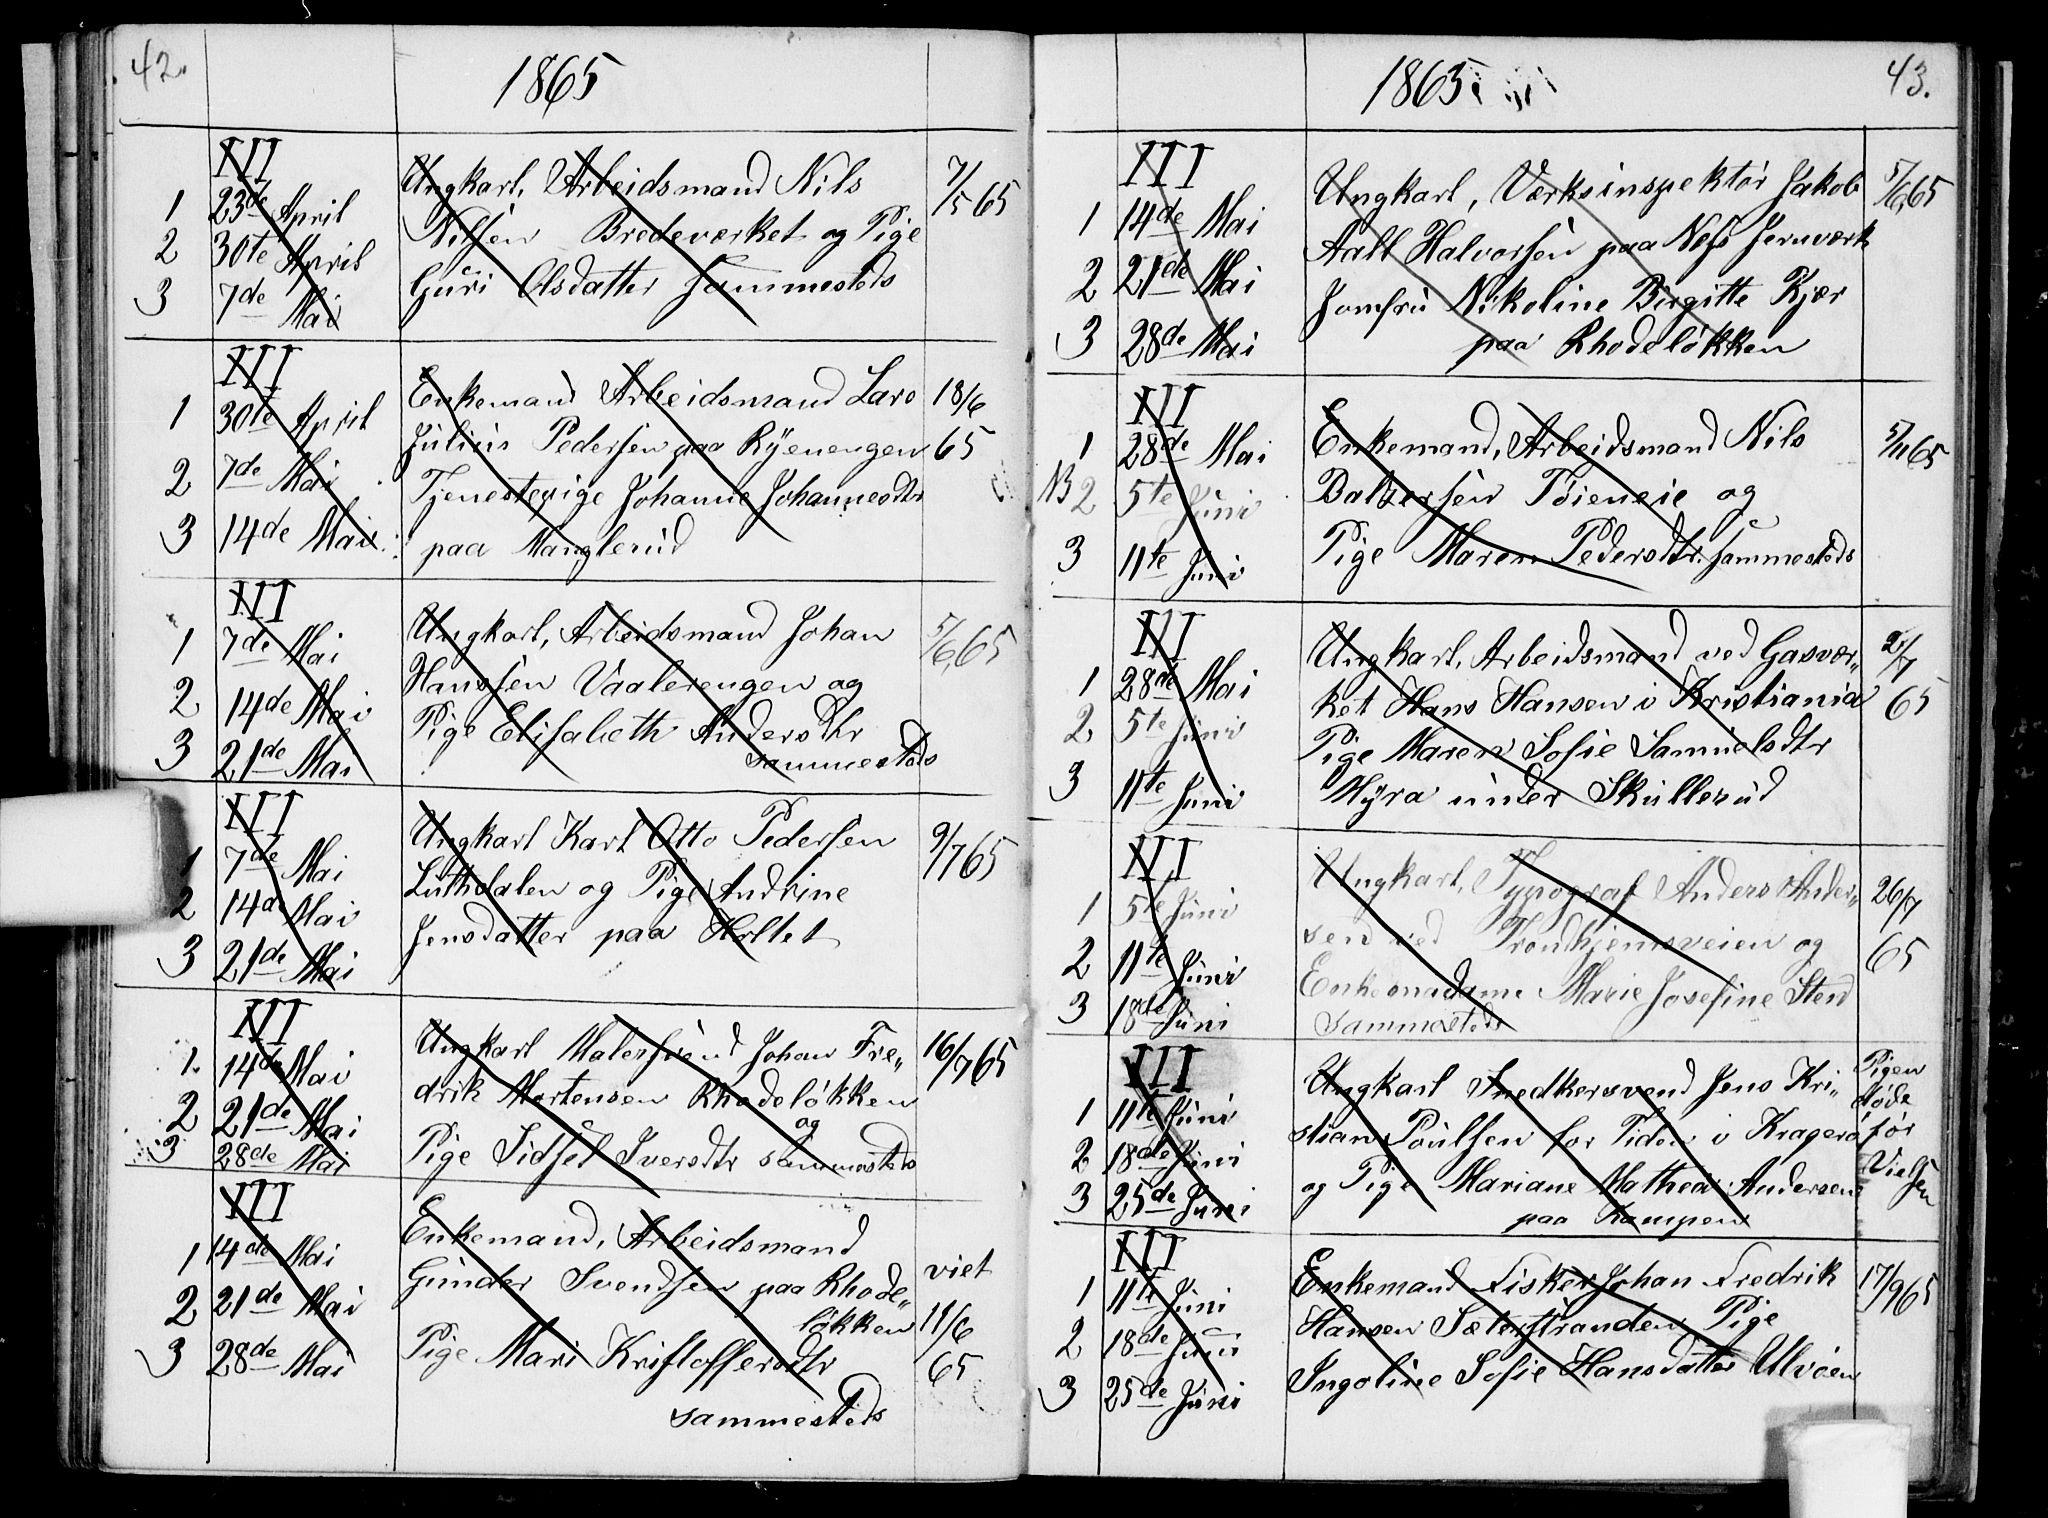 42.
1865
III
1 23de April
2 30te April
3 7de Mai
Ungkarl, Arbeidsmand Nils
Nilsen Bredeværket og Pige
Guri Olsdatter sammesteds
7/5 65
III
1 30te April
2 7de Mai
3 14de Mai
Enkemand Arbeidsmand Lars
Julius Pedersen paa Ryenengen
Tjenestepige Johanne Johannesdtr
paa Manglerud
18/6
65
III
1 7de Mai
2 14de Mai
3 21de Mai
Ungkarl, Arbeidsmand Johan
Hanssen Vaalerengen og
Pige Elisabeth Andersdtr
sammesteds
5/6 65
III
1 7de Mai
2 14de Mai
3 21de Mai
Ungkarl Karl Otto Pedersen
Luthdalen og Pige Andrine
Jensdatter paa Holtet
9/7 65
III
1. 14de Mai
2 21de Mai
3 28de Mai
Ungkarl Malersvend Johan Fre„
drik Mortensen Rhodeløkken
og
Pige Sidsel Iversdtr sammesteds
16/7 65
III
1 14de Mai
2 21de Mai
3 28de Mai
Enkemand, Arbeidsmand
Gunder Svendsen paa Rhode„
løkken
Pige Mari Kristoffersdtr
sammesteds
viet
11/6
65
43.
1865
III
1 14de Mai
2 21de Mai
3 28de Mai
Ungkarl, Værksinspektør Jakob
Aall Halvorsen paa Næs Jernværk
Jomfru Nikoline Birgitte Kjær
paa Rhodeløkken
5/6 65
III
1 28de Mai
NB 2 5te Juni
3 11te Juni
Enkemand, Arbeidsmand Nils
Baltzersen Tøieneie og
Pige Maren Pedersdtr. sammesteds
5/11 65
III
1 28de Mai
2. 5te Juni
3 11te Juni
Ungkarl, Arbeidsmand ved Gasvær„
ket Hans Hansen i Kristiania
Pige Maren Sofie Samuelsdtr
Myra under Skullerud
2/7
65
III
1 5te Juni
2 11te Juni
3 18de Juni
Ungkarl, Typograf Anders Ander„
sen ved Trondhjemsveien og
Enkemadame Marie Josefine Sten
sammesteds
26/7
65
III
1 11te Juni
2 18de Juni
3 25de Juni
Ungkarl Snedkersvend Jens Kri„
stian Poulsen for Tiden i Kragerø
og Pige Mariane Mathea Andersen
paa Kampen
Pigen
døde
før
Vielsen
III
1 11te Juni
2 18de Juni
3 25de Juni
Enkemand Fisker Johan Fredrik
Hansen Sæterstranden Pige
Ingoline Sofie Hansdatter Ulvøen
17/9 65